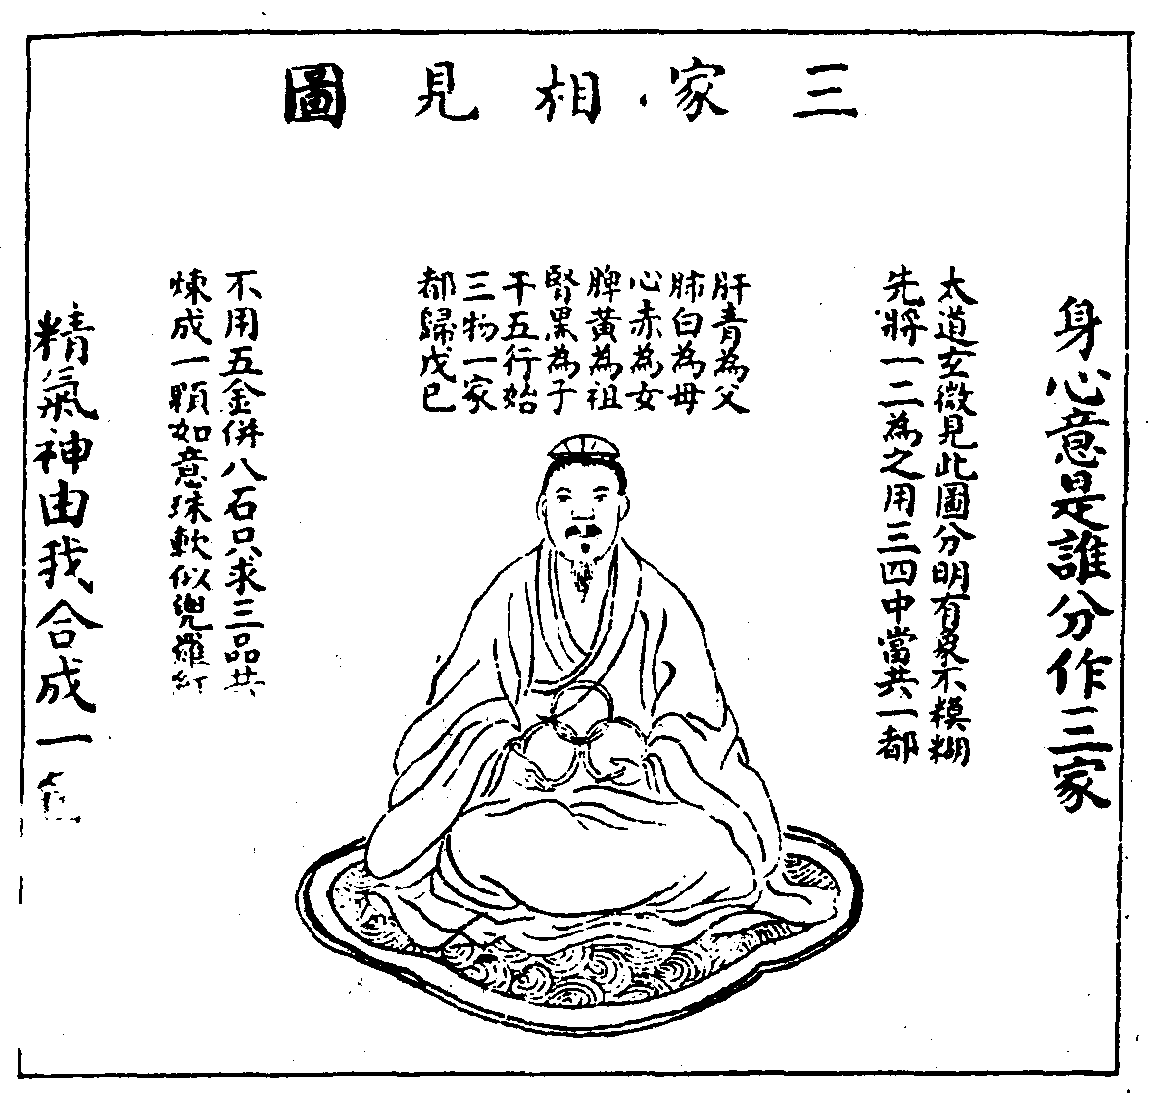 三家相見圖
身心意是誰分作三家
太道玄微見此圖分明有象不糢糊
先將一二為之用三四中當共一都
肝青為父
肺白為母
心赤為女
脾黃為祖
腎黑為子
干五行始
三物一家
都歸戊巳
不用五金併八石只求三品共
煉成一顆如意珠軟似兜羅紅
精氣神由我合成一